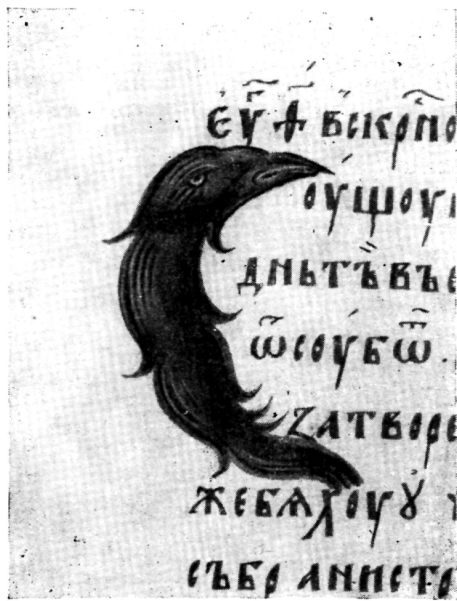 еѵ҃г а҃ вскрⷭ҇но
оущоу
дньтъвъе
ѿсоубѿ.
ꙁатворе
жебѧхоуꙋ
събранистр